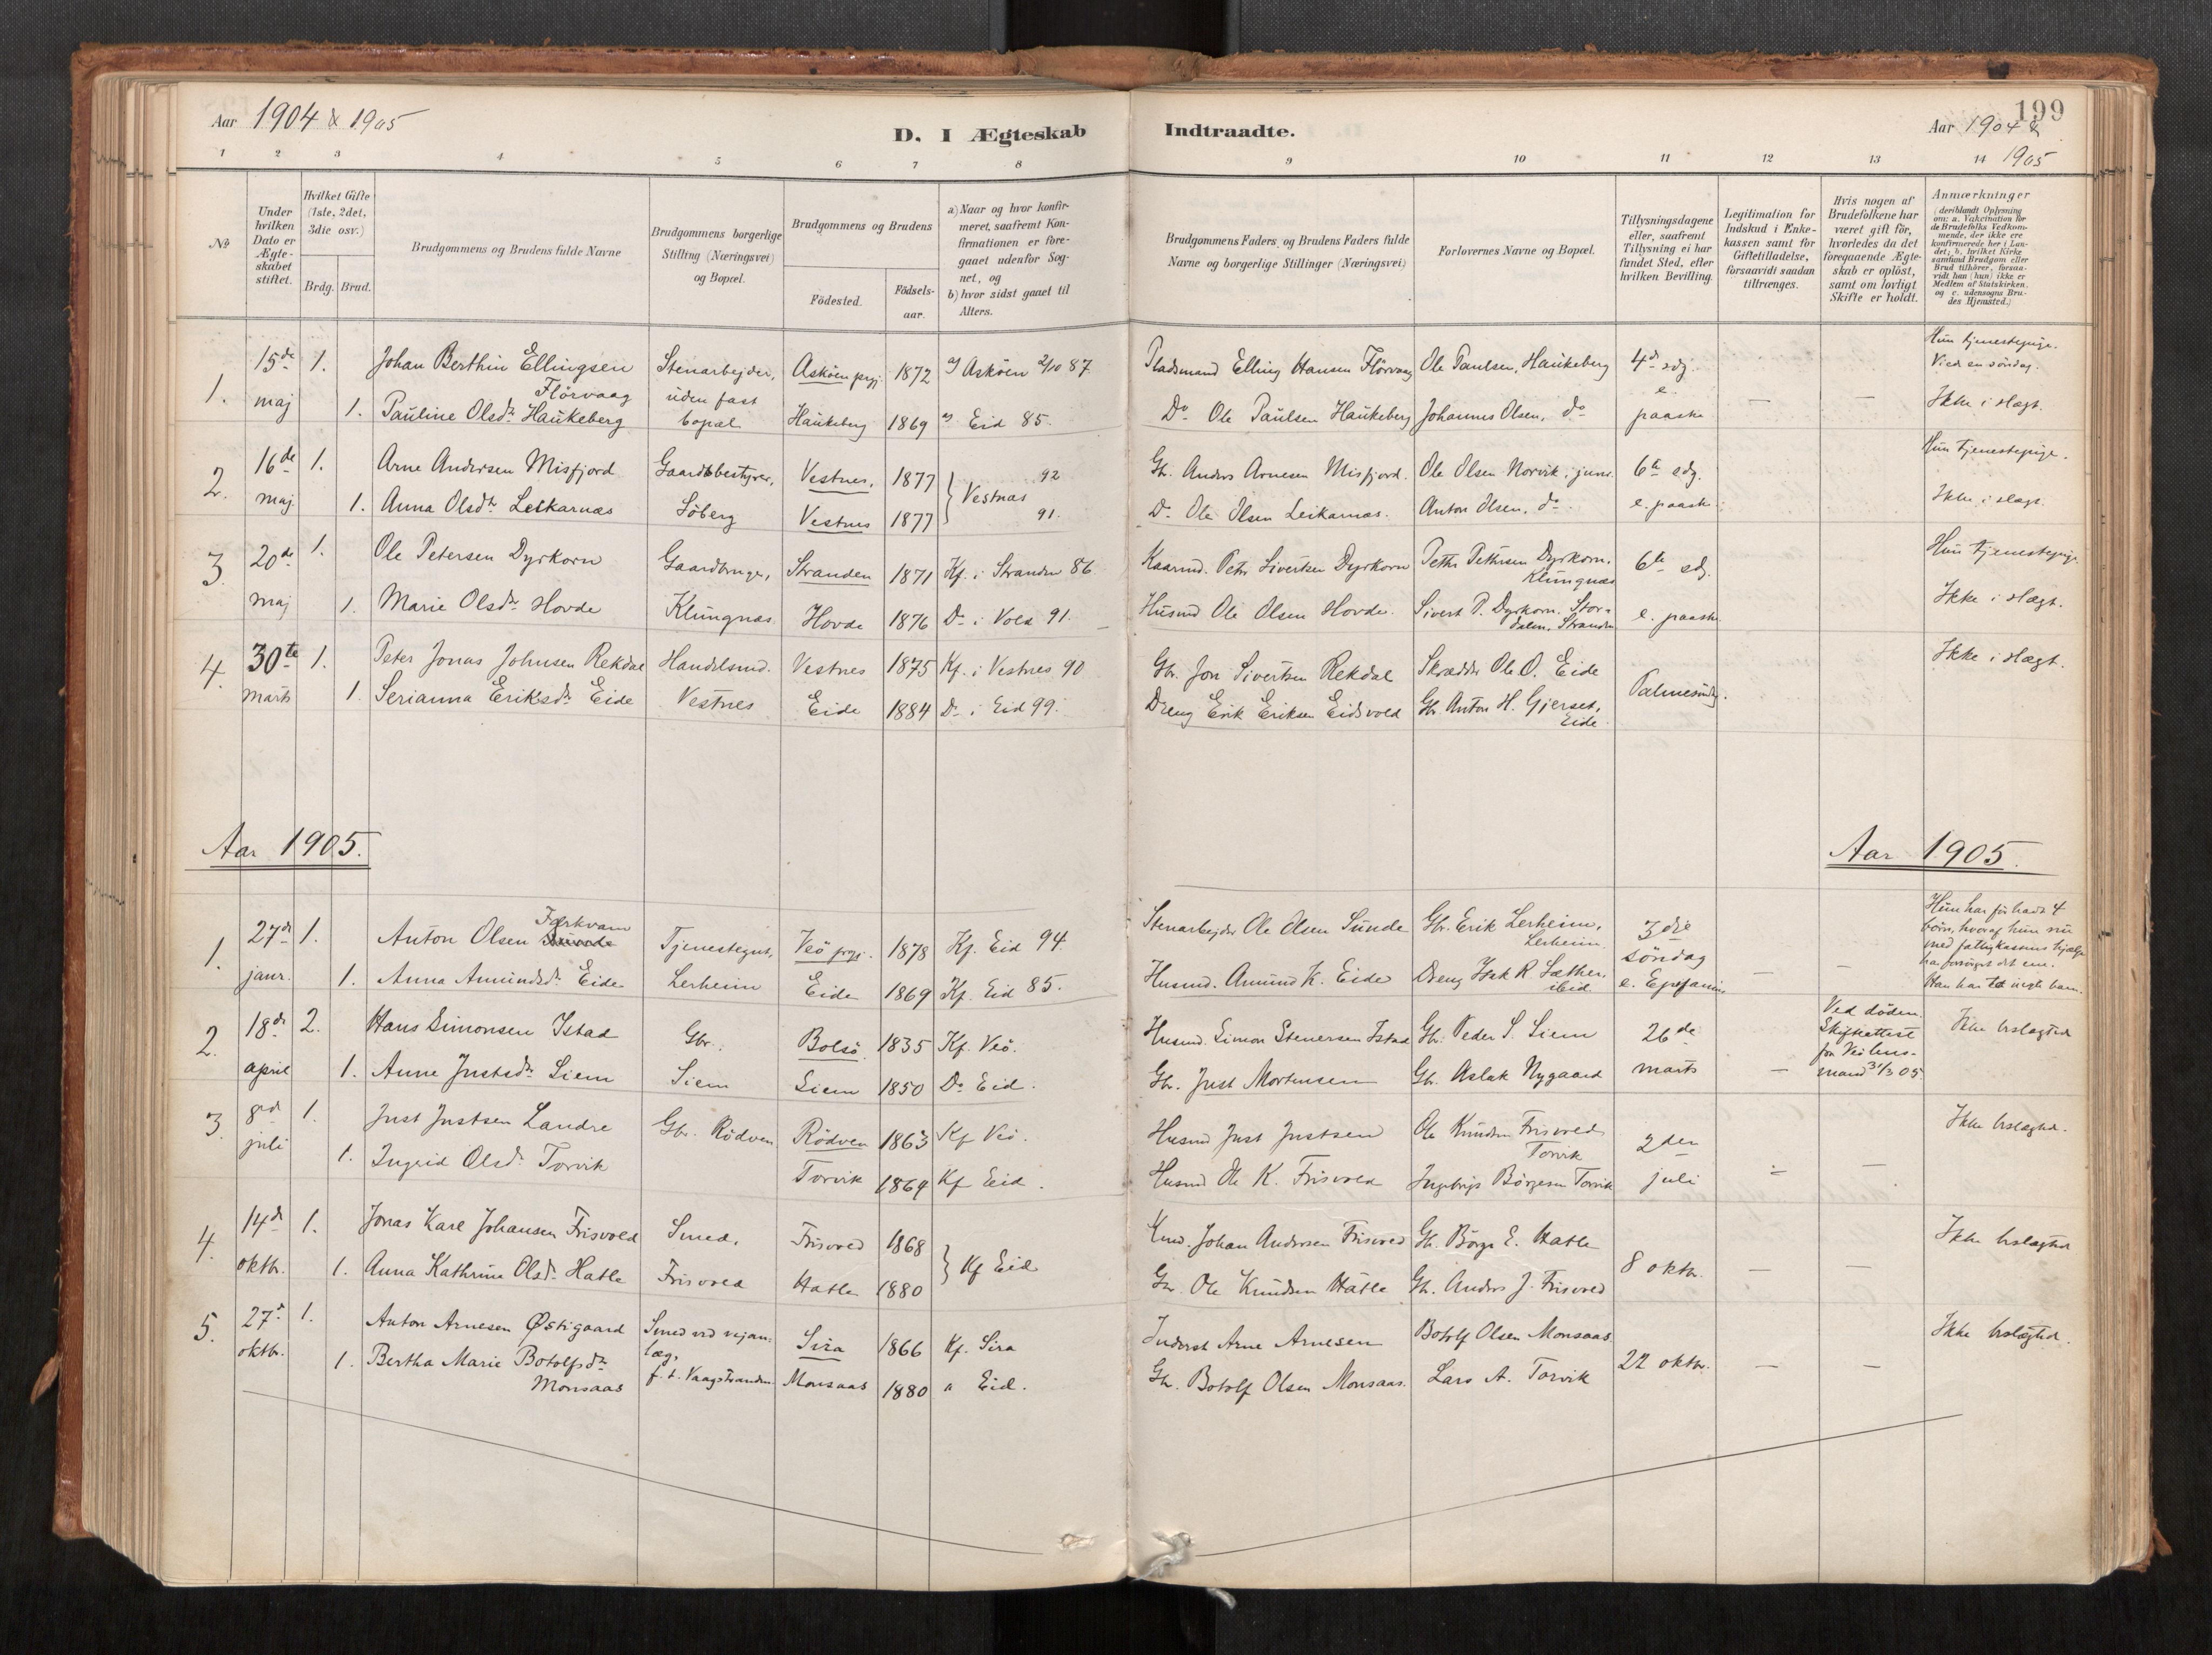 Aar 1904 & 1905
D. I Ægteskab
Indtraadte.
199
Aar 1904 &
1905
1 2 3 4 5 6 7 8
9 10 11 12 13 14
No
Under hvilken Dato er Ægte-skabet stiftet.
Hvilket Gifte (1ste, 2det, 3die osv.)
Brdg. Brud.
Brudgommens og Brudens fulde Navne
Brudgommens borgerlige Stilling (Næringsvei) og Bopæl.
Brudgommens og Brudens
Födested.
Födsels-aar.
a) Naar og hvor konfir-meret, saafremt Kon-firmationen er fore-gaaet udenfor Sog-net, og
b) hvor sidst gaaet til Alters.
Brudgommens Faders og Brudens Faders fulde Navne og borgerlige Stillinger (Næringsvei)
Forlovernes Navne og Bopæl.
Tillysningsdagene eller, saafremt Tillysning ei har fundet Sted, efter hvilken Bevilling.
Legitimation for Indskud i Enke-kassen samt for Giftetilladelse, forsaavidt saadan tiltrænges.
Hvis nogen af Brudefolkene har været gift för, hvorledes da det foregaaende Ægte-skab er oplöst, samt om lovligt Skifte er holdt.
Anmærkninger
(deriblandt Oplysning om: a. Vakcination for de Brudefolks Vedkom-mende, der ikke ere konfirmerede her i Lan-det; b. hvilket Kirke samfund Brudgom eller Brud tilhører, forsaa-vidt han (hun) ikke er Medlem af Statskirken. og c. udensogns Bru-des Hjemsted.)
1. 15de maj 1. Johan Berthin Ellingsen Flörvaag Stenarbejder, uden fast bopæl Asköen prgj. 1872 a) Asköen 2/10 87. Pladsmand Elling Hansen Flörvaag Ole Paulsen, Haukeberg 4de sdg. e. paaske — — Hun tjenestepige. Viede en söndag.
1. Pauline Olsdr Haukeberg Haukeberg 1869 a) Eid 85. Do Ole Paulsen Haukeberg Johannes Olsen, do Ikke i slægt.
2. 16de maj 1. Arne Andersen Misfjord Gaardsbestyrer, Söberg Vestnes, 1877 } Vestnæs 92 Gbr. Anders Arnesen Misfjord. Ole Olsen Norvik, junr. 6te sdg. e. paaske. Hun tjenestepige.
1. Anna Olsdr Leikarnæs Vestnes 1877 91. Do Ole Olsen Leikarnæs. Anton Olsen, do Ikke i slægt.
3. 20de maj 1. Ole Petersen Dyrkorn Gaardbruger, Klungnæs Stranden 1871 Kf. i Stranden 86 Kaarmd. Peter Sivertsen Dyrkorn Petter Pettersen Dyrkorn. Klungnæs 6te sdg. e. paaske. Hun tjenestepige
1. Marie Olsdr Hovde Hovde 1876 Do i Vold 91. Husmd Ole Olsen Hovde. Sivert P. Dyrkorn. Stor-dalen. Stranden Ikke i slægt.
4. 30te marts 1. Peter Jonas Johnsen Rekdal Handelsmd. Vestnes Vestnes 1875 Kf. i Vestnes 90 Gbr. Jon Sivertsen Rekdal Skrædder Ole O. Eide Palmesöndg. Ikke i slægt.
1. Serianna Eriksdr Eide Eide 1884 Do i Eid 99. Dreng Erik Eriksen Eidsvold Gbr. Anton H. Gjerset, Eide
Aar 1905.
Aar 1905.
1. 27de janr. 1. Anton Olsen Sunde Tjenestegut, Lerheim Veö prgj. 1878 Kf. Eid 94. Stenarbejder Ole Olsen Sunde Gbr. Erik Lerheim, Lerheim. 3die söndag e. Epifanias — — Hun har för havt 4 börn, hvoraf hun nu med fattigkassens hjælp har forsörget det ene. Han har intet barn.
1. Anna Amundsdr Eide Eide 1869 Kf. Eid 85. Husmd. Amund K. Eide Dreng Isak R. Sæther, ibid.
2. 18de april 2. Hans Simonsen Istad Gbr. Siem Bolsö 1835 Kf. Veö. Husmd. Simon Stenersen Istad Gbr. Peder S. Siem 26de marts — Ved döden. Skifteattest fra Veö lens-mand 31/3 05 Ikke beslægted
1. Anne Justsdr Siem Siem 1850 Do Eid. Gbr. Just Mortensen Gbr. Aslak Nygaard
3. 8de juli 1. Just Justsen Landre Gbr. Rödven Rödven 1863 Kf Veö. Husmd Just Justsen Ole Knudsen Frisvold Torvik 2den juli — — Ikke beslægted.
1. Ingrid Olsdr Torvik Torvik 1869 Kf Eid. Husmd Ole K. Frisvold Ingebrigt Börgesen Torvik
4. 14de oktbr. 1. Jonas Karl Johansen Frisvold Smed, Frisvold Frisvold 1868 } Kf Eid Kmd. Johan Andersen Frisvold Gbr. Börge E. Hatle 8 oktbr. — — Ikke beslægted
1. Anna Kathrine Olsdr Hatle Hatle 1880 Gbr. Ole Knudsen Hatle Gbr. Anders J. Frisvold
5. 27de oktbr. 1. Anton Arnesen Østigaard Smed ved vejan-læg, f. t. Vaagstranden Sira 1866 Kf. Sira Inderst Arne Arnesen Botolf Olsen Monsaas 22 oktbr. — — Ikke beslægted.
1. Bertha Marie Botolfsdr Monsaas Monsaas 1880 " Eid. Gbr. Botolf Olsen Monsaas. Lars A. Torvik